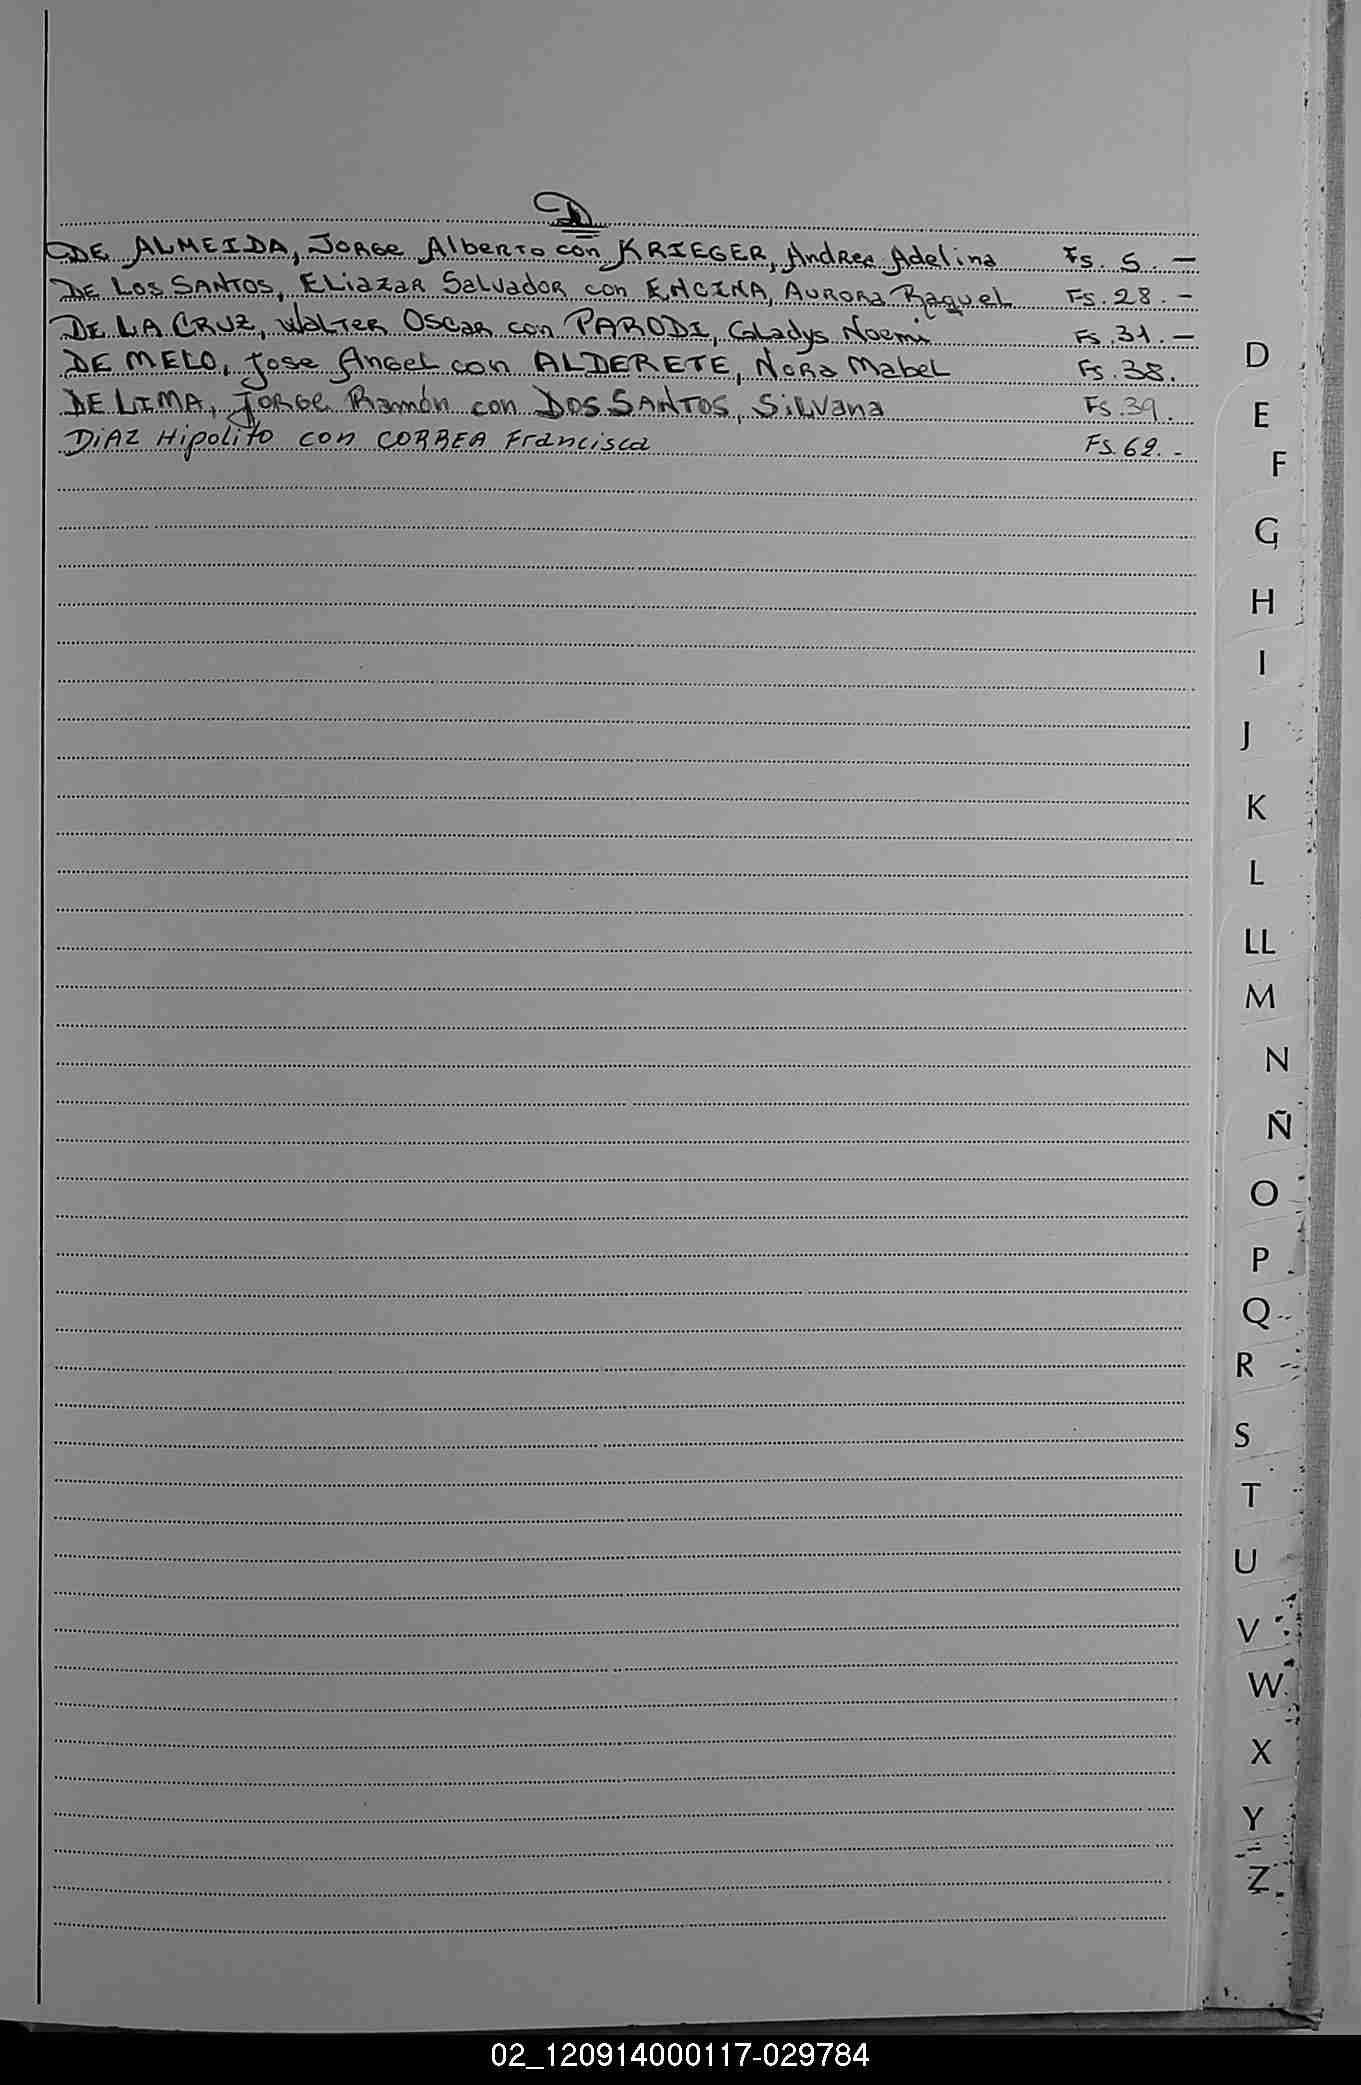 D
DE ALMEIDA, Jorge Alberto con KRIEGER, Andrea Adelina Fs. 5. -
DE LOS SANTOS, Eliazar Salvador con ENCINA, Aurora Raquel Fs. 28. -
DE LA CRUZ, Walter Oscar con PARODI, Gladys Noemi Fs. 31. -
DE MELO, Jose Angel con ALDERETE, Nora Mabel Fs. 38.
DE LIMA, Jorge Ramón con DOS SANTOS, Silvana Fs. 39.
DIAZ Hipolito con CORREA Francisca Fs. 62. -
D
E
F
G
H
I
J
K
L
LL
M
N
Ñ
O
P
Q
R
S
T
U
V
W
X
Y
Z
02_120914000117-029784